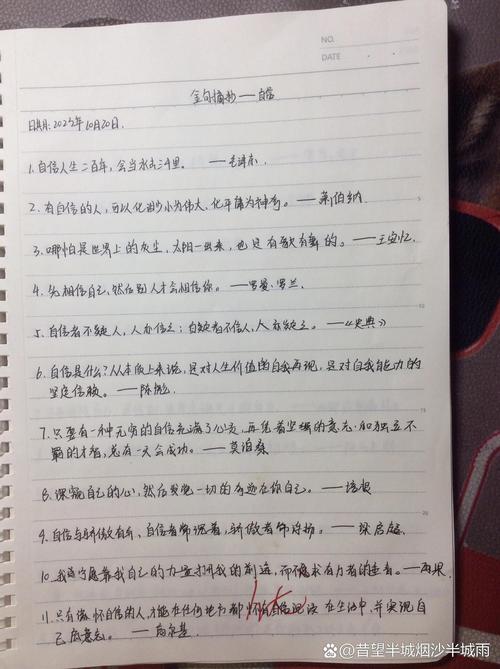 NO.
DATE
金句摘抄——自信
日期:2023年10月20日.
1.自信人生二百年,会当水击三千里。——毛泽东.
2.有自信的人,可以化渺小为伟大,化平庸为神奇。——萧伯纳
3.哪怕是世界上的灰尘,太阳一出来,也是有歌有舞的。——王安忆.
4.先相信自己,然后别人才会相信你。——罗曼.罗兰.
5.自信者不疑人,人亦信之;自疑者不信人,人亦疑之。——《史典》
6.自信是什么?从本质上来说,是对人生价值的自我再现,是对自我能力的
坚定信赖。——陈
7.只要有一种无穷的自信充满了心灵,再凭着坚强的意志和独立不
羁的才智,总有一天会成功。——莫泊桑
8.深窥自己的心,然后发觉一切的奇迹在你自己。——培根
9.自信与骄傲有异,自信者常沉着,骄傲者常浮扬。——梁启超.
10.我宁愿靠我自己的力量打开我的前途,而不愿求有力者的垂青。——雨果.
11.只有满怀自信的人,才能在任何地方都怀自信沉浸在生活中,并实现自
己意志。——高尔基
@昔望半城烟沙半城雨